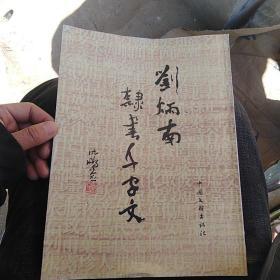 劉炳南
隸書千字文
中国文联出版社